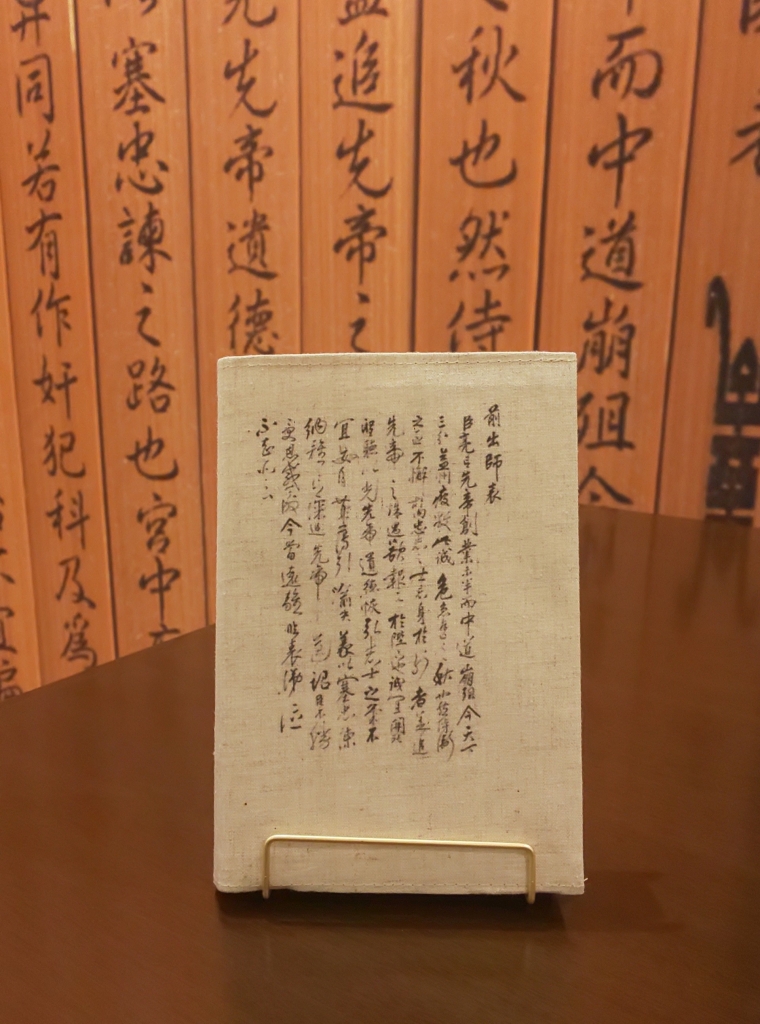 而中道崩殂今
秋也然侍
追先帝之
先帝遺德
塞忠諫之路也宮中
同若有作奸犯科及爲
宜偏
前出師表
臣亮言先帝創業未半而中道崩殂今天下
三分益州疲敝此誠危急存亡之秋也然侍衛
之臣不懈忠志之士忘身於外者蓋追
先帝之殊遇欲報之於陛下也誠宜開
聖聽以光先帝遺德恢弘志士之氣不
宜妄自菲薄引喻失義以塞忠諫
納雅言深追先帝遺詔臣不勝
受恩感激今當遠離臨表涕泣
不知所云